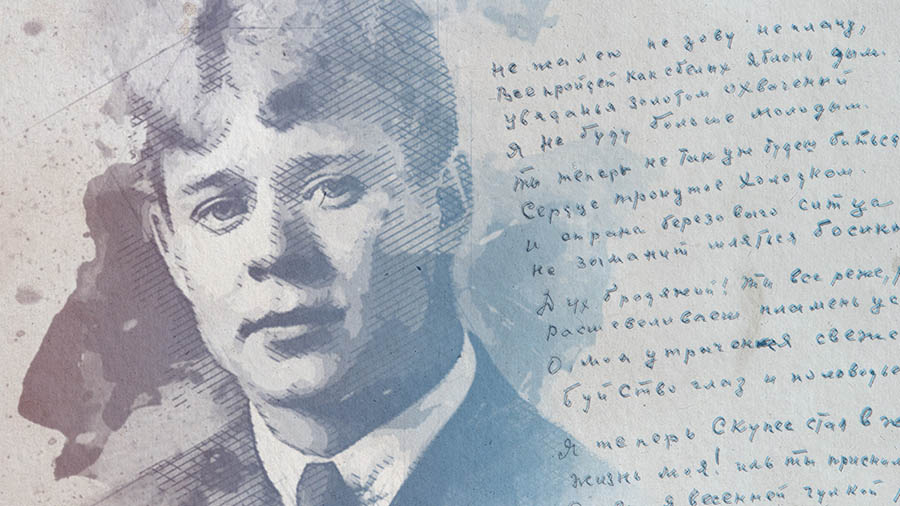 не жалею не зову не плачу,
Все пройдет как с белых яблонь дым.
увяданья золотом охваченный
Я не буду больше молодым.
Ты теперь не так уж будешь биться
Сердце тронутое холодком.
и страна березового ситца
не заманит шляться босик
Дух бродяжий! ты все реже, р
расшевеливаешь пламень ус
О, моя утраченная свеже
буйство глаз и половодье
Я теперь скупее стал в ж
жизнь моя! иль ты присни
я весенней гулкой р